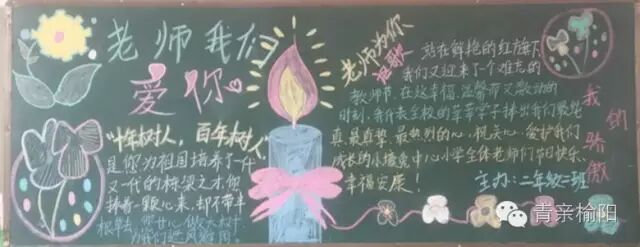 老师我们
爱你
"十年树人，百年树人"
是你为祖国培养了一代
又一代的栋梁之才,您
捧着一颗心来,却不带半
根草去,您甘心做大树
为我们遮风避雨。
老师为你
祝歌
站在鲜艳的红旗下,
我们又迎来了一个难忘的
教师节,在这幸福,温馨而又激动的
时刻,我代表全校的莘莘学子捧出我们最纯
真,最真挚,最热烈的心,祝关心,爱护我们
成长的小壕兔中心小学全体老师们节日快乐、
幸福安康!
主办:二年级二班
我的骄傲
青亲榆阳